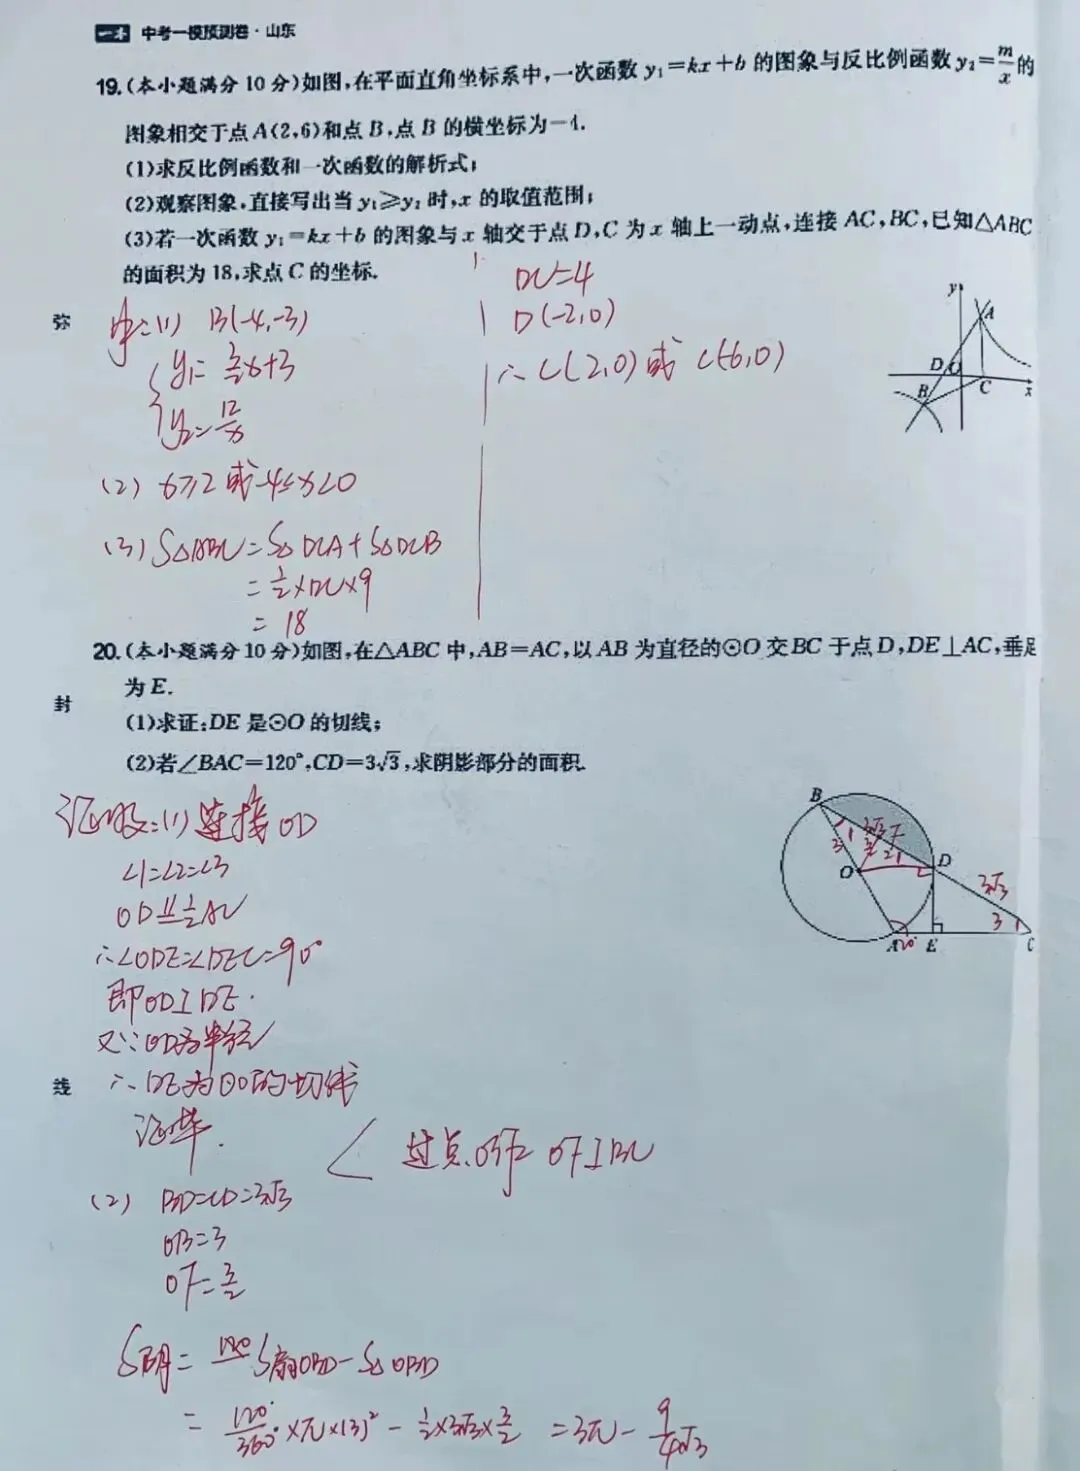 一本 中考一模预测卷·山东
19.(本小题满分10分)如图,在平面直角坐标系中,一次函数y₁=kx+b的图象与反比例函数y₂=m/x的
图象相交于点A(2,6)和点B,点B的横坐标为-4.
(1)求反比例函数和一次函数的解析式;
(2)观察图象,直接写出当y₁≥y₂时,x的取值范围;
(3)若一次函数y₁=kx+b的图象与x轴交于点D,C为x轴上一动点,连接AC,BC,已知△ABC
的面积为18,求点C的坐标.
(1) B(-4,-3)
y₁=3/2x+3
y₂=12/x
(2) x≥2或-4≤x<0
(3) S△ABC=S△DCA+S△DCB
=1/2×DC×9
=18
DC=4
D(-2,0)
∴C(2,0)或C(-6,0)
y
A
D
O
B
C
x
弥
20.(本小题满分10分)如图,在△ABC中,AB=AC,以AB为直径的⊙O交BC于点D,DE⊥AC,垂足
为E.
(1)求证:DE是⊙O的切线;
(2)若∠BAC=120°,CD=3√3,求阴影部分的面积.
封
证明:(1)连接OD
∠1=∠2=∠3
OD∥=1/2AC
∴∠ODE=∠DEC=90°
即OD⊥DE.
又∵OD为半径
∴DE为⊙O的切线
证毕.
线
过点O作OF⊥BC
(2) BD=CD=3√3
OB=3
OF=3/2
S阴=S扇OBD-S△OBD
=120°/360°×π×(3)²-1/2×3√3×3/2=3π-9/4√3
B
1
3√3
F
3
3/2
2
D
O
3√3
3
A
120°
E
C